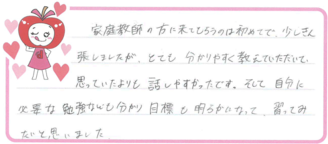 家庭教師の方に来てもらうのは初めてで、少しきん
張しましたが、とても分かりやすく教えていただいて、
思っていたよりも話しやすかったです。そして自分に
必要な勉強なども分かり目標も明らかになって、習ってみ
たいと思いました。